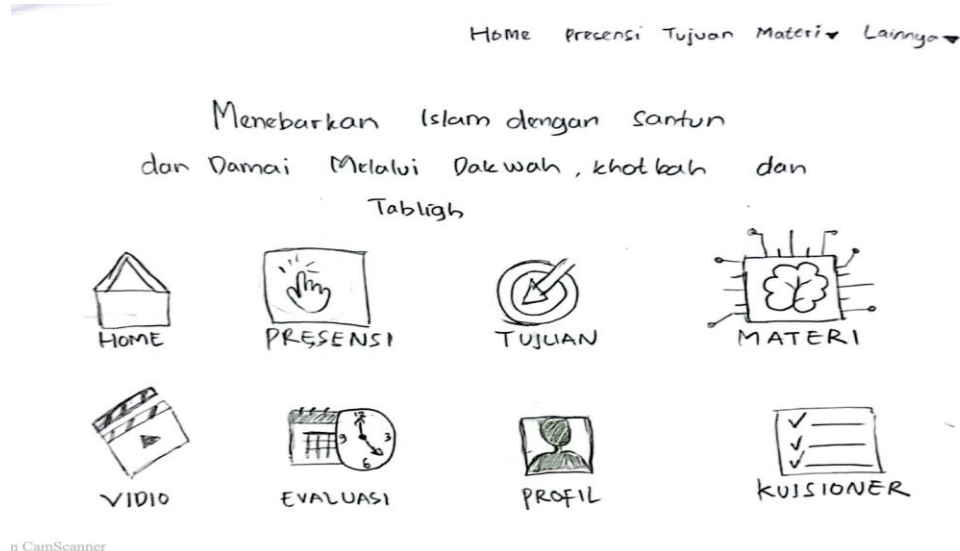 Home Presensi Tujuan Materi Lainnya
Menebarkan Islam dengan santun
dan Damai Melalui Dakwah, khotbah dan
Tabligh
HOME PRESENSI TUJUAN MATERI
12
9 3
6
VIDIO EVALUASI PROFIL KUISIONER
n CamScanner